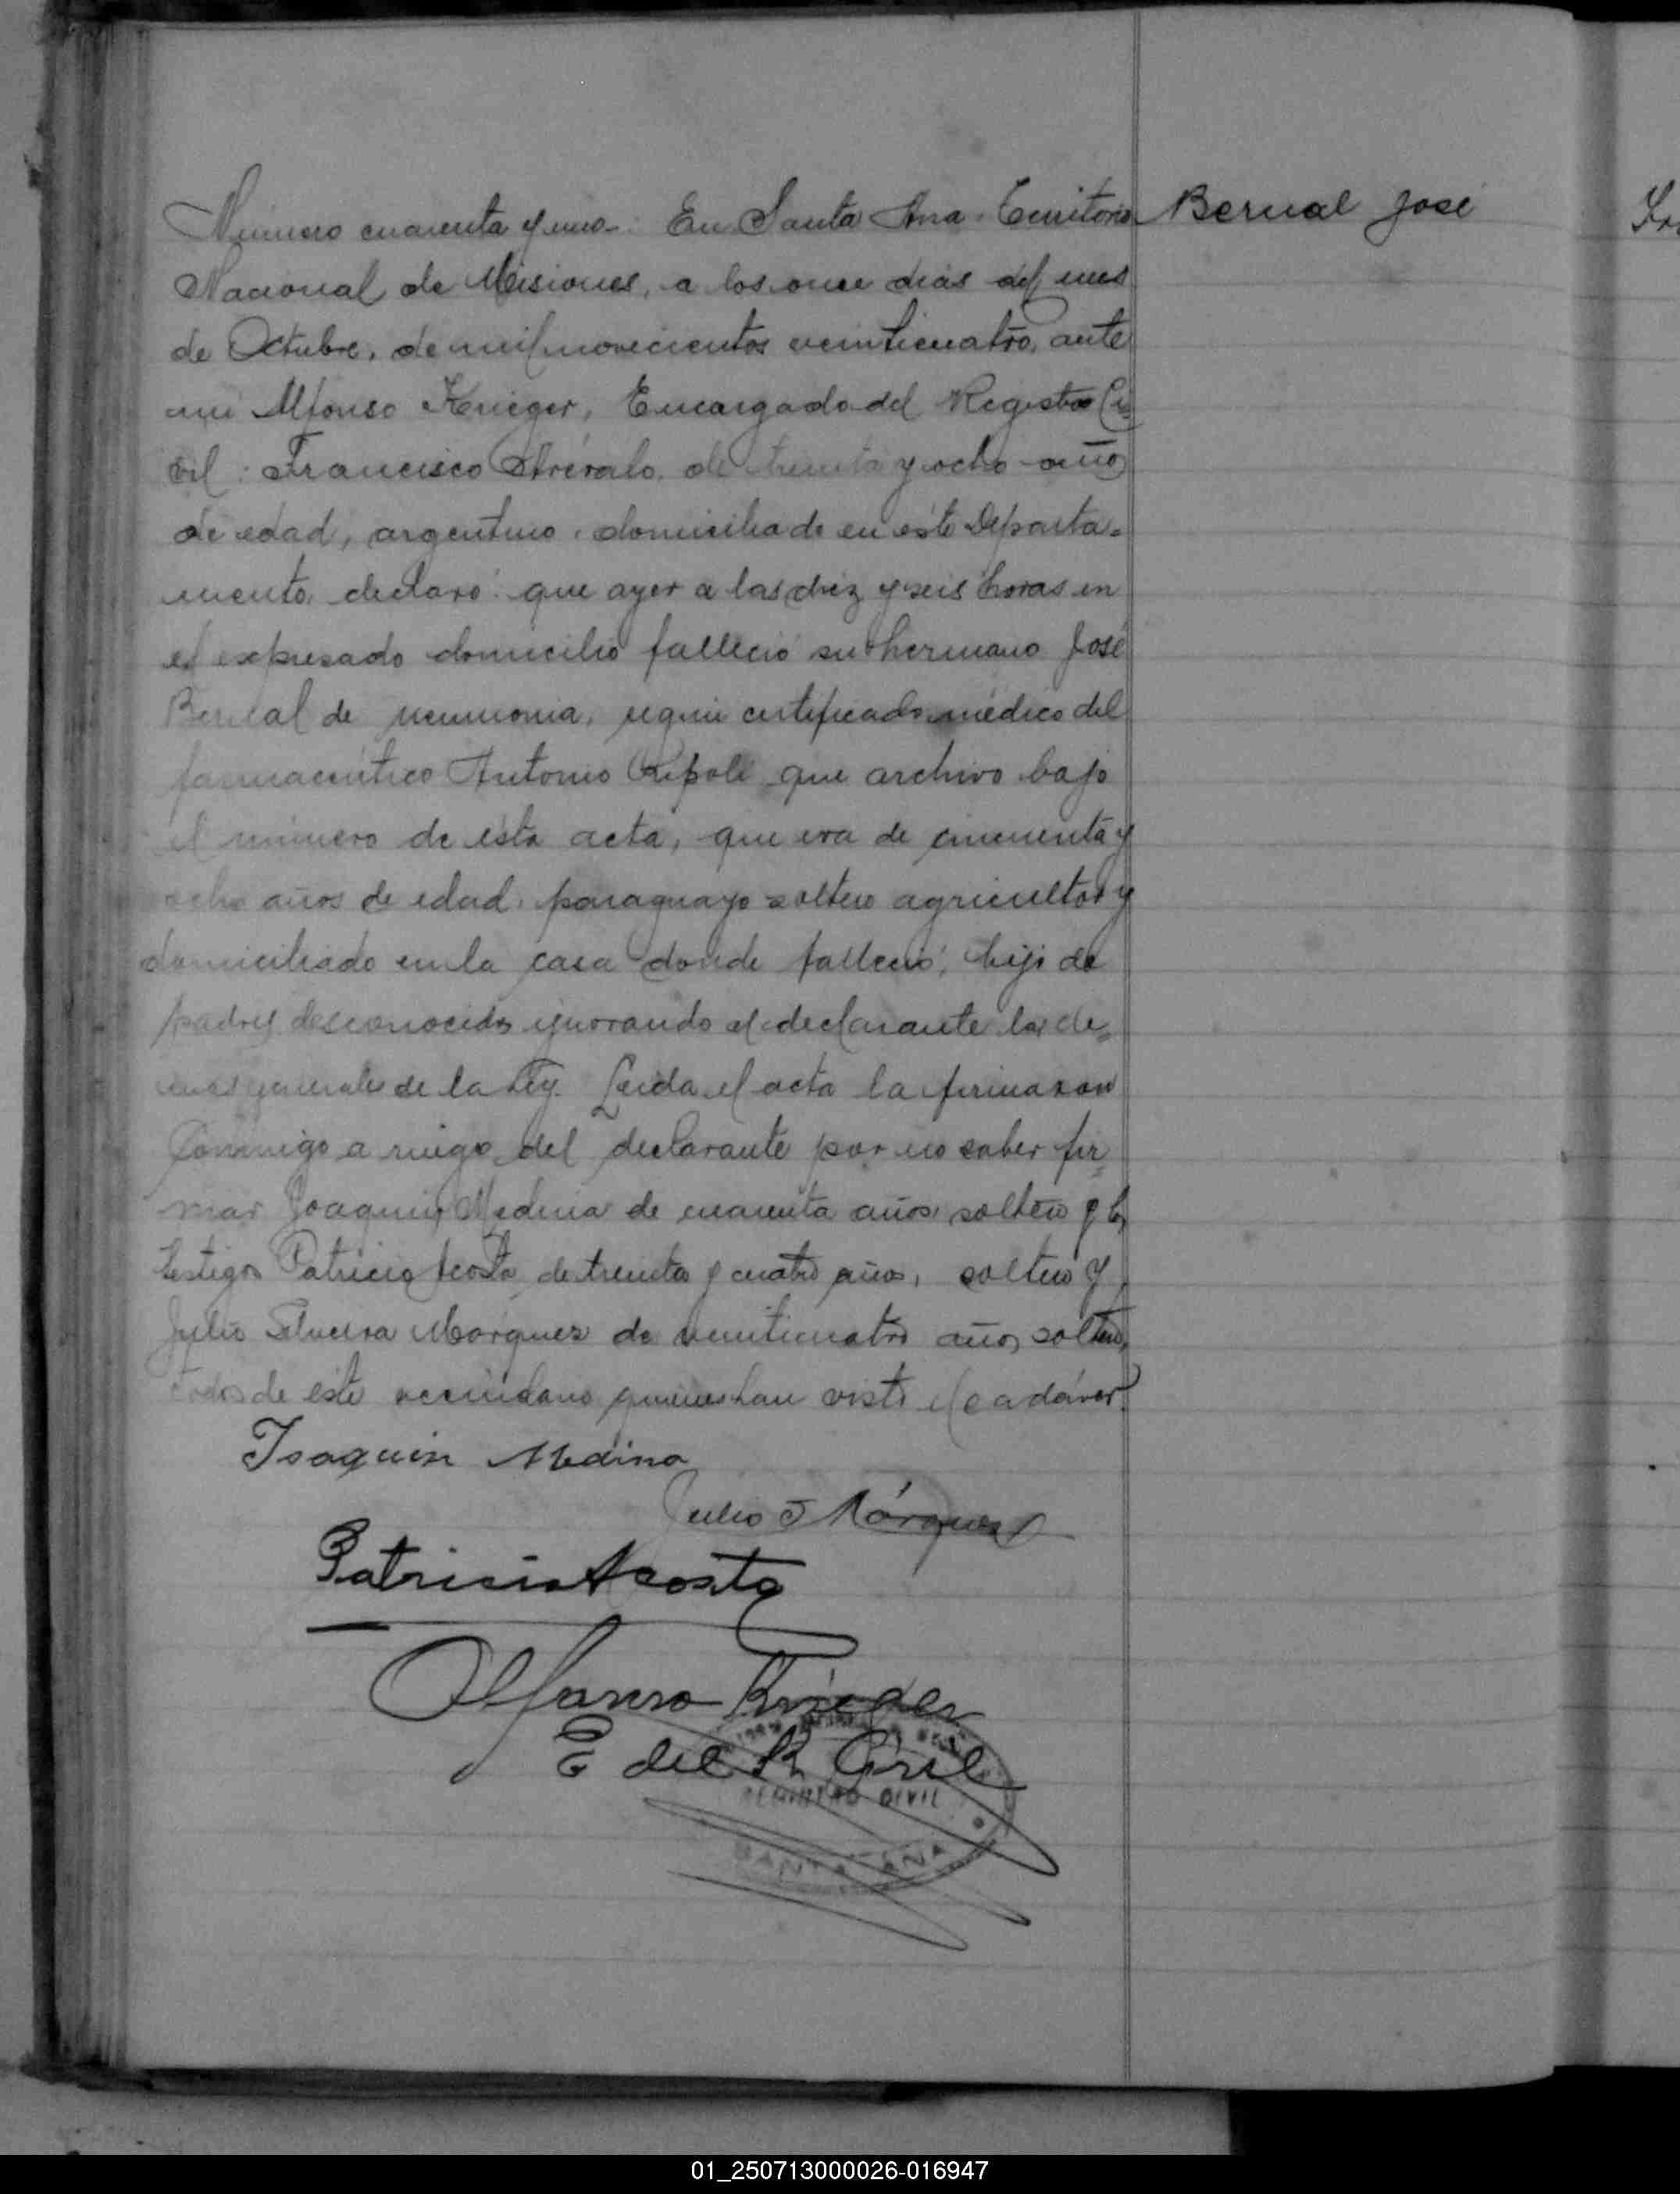 Número cuarenta y uno. En Santa Ana. Territorio
Bernal José
Nacional de Misiones, a los once dias del mes
de Octubre, de mil novecientos veinticuatro, ante
mi Alfonso Krieger, Encargado del Registro Ci=
vil: Francisco Arévalo, de treinta y ocho años
de edad, argentino, domiciliado en este Departa=
mento, declaró: que ayer a las diez y seis horas en
el expresado domicilio falleció su hermano José
Bernal de neumonia, segun certificado médico del
farmacéutico Antonio Ripoll que archivo bajo
el número de esta acta, que era de cincuenta y
ocho años de edad, paraguayo soltero agricultor y
domiciliado en la casa donde falleció, hijo de
padres desconocidos ignorando el declarante las de=
mas generales de la Ley. Leida el acta la firmaron
Conmigo a ruego del declarante por no saber fir=
mar Joaquin Medina de cuarenta años, soltero y los
testigos Patricio Acosta, de treinta y cuatro años, soltero y
Julio Silveira Márquez de veinticuatro años, soltero,
todos de este vecindario quienes han visto el cadáver.
Joaquin Medina
Julio S Márquez
Patricio Acosta
Alfonso Krieger
E del R Civil
REGISTRO CIVIL
SANTA ANA
01_250713000026-016947